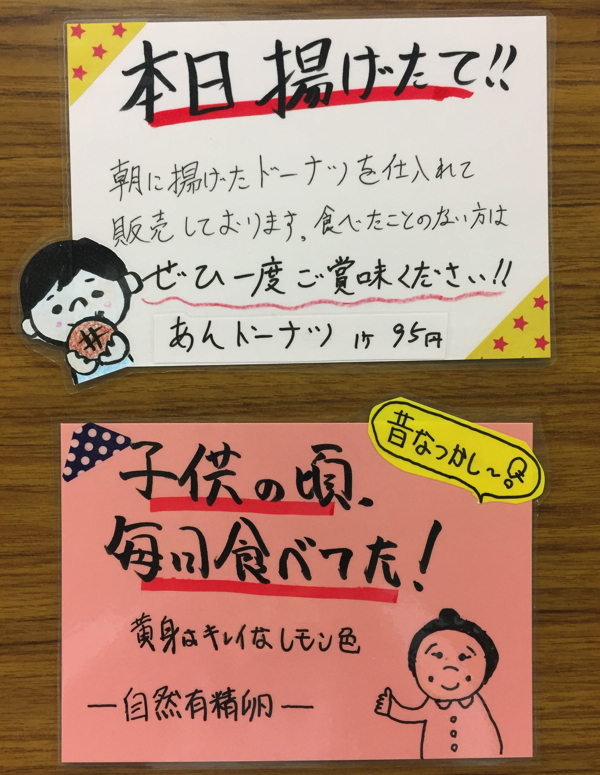 本日揚げたて!!
朝に揚げたドーナツを仕入れて
販売しております。食べたことのない方は
ぜひ一度ご賞味ください!!
あんドーナツ 1ケ 95円
昔なつかし〜
子供の頃、
毎日食べてた!
黄身はキレイなレモン色
ー自然有精卵ー